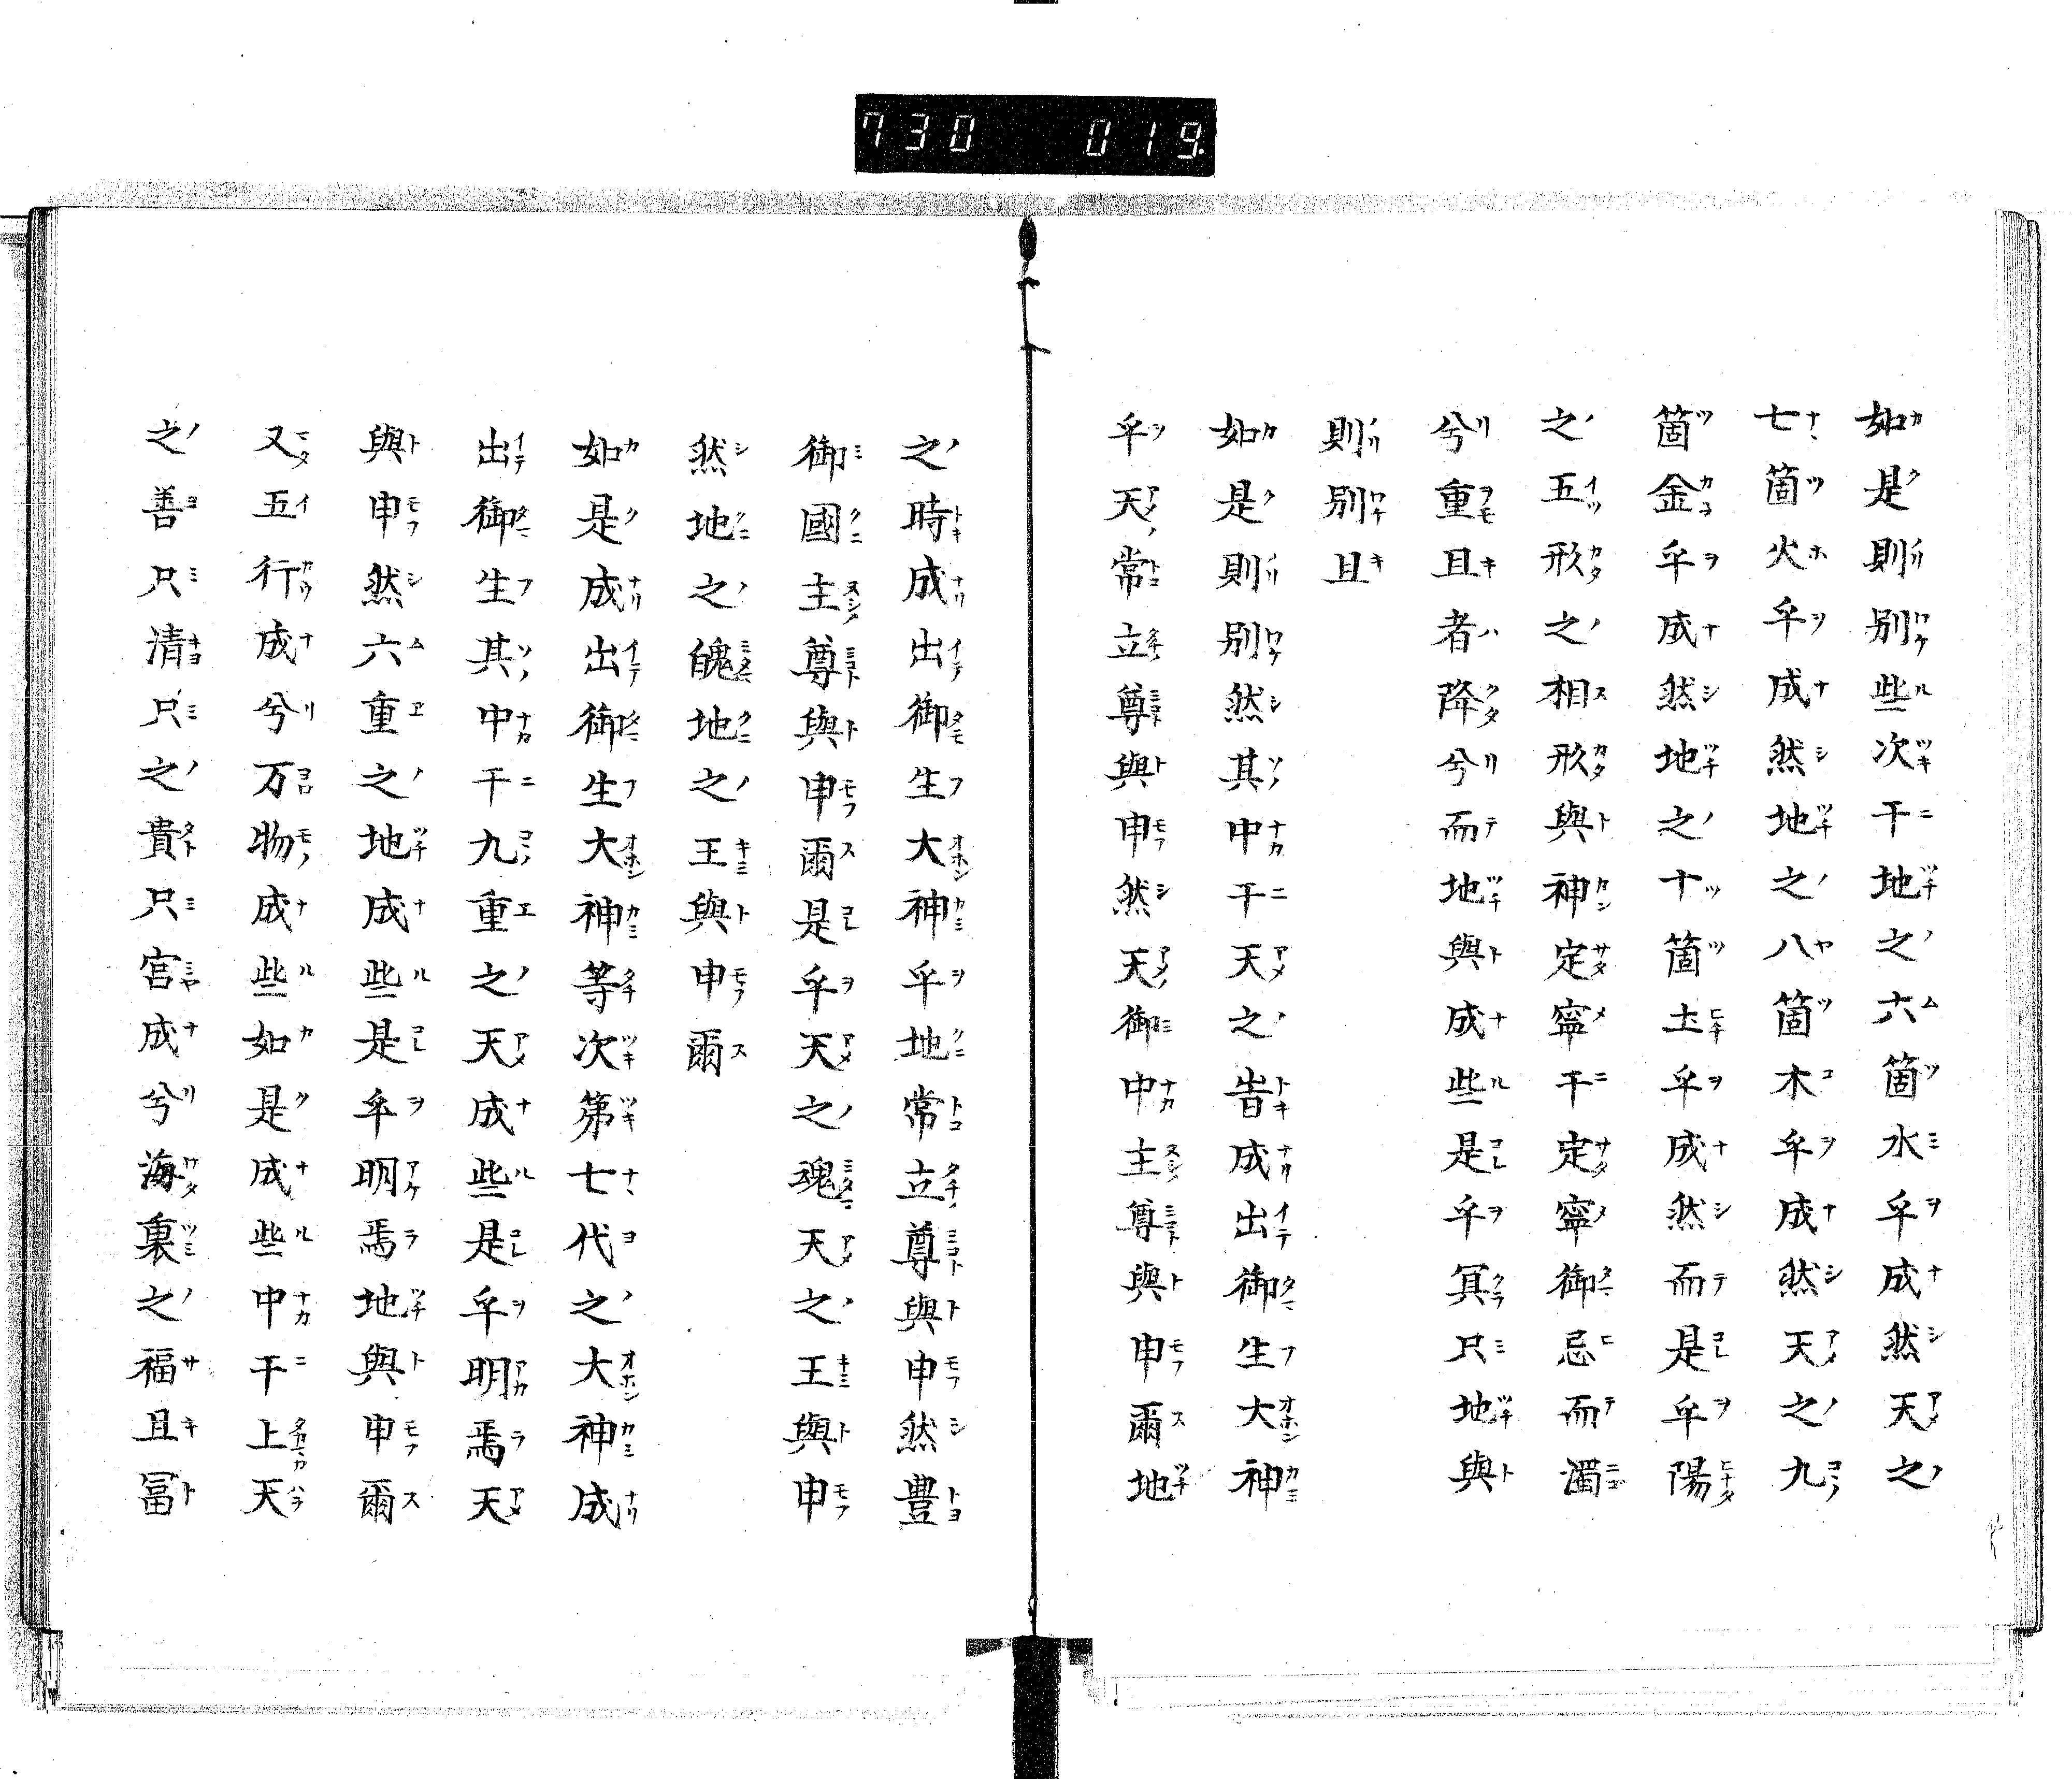 730 019
如是則別些次干地之六箇水乎成然天之
七箇火乎成然地之八箇木乎成然天之九
箇金乎成然地之十箇土乎成然而是乎陽
之五形之相形與神定寧干定寧御忌而濁
兮重且者降兮而地與成些是乎冥只地與
則別且
如是則別然其中干天之旹成出御生大神
乎天常立尊與申然天御中主尊與申爾地
之時成出御生大神乎地常立尊與申然豊
御國主尊與申爾是乎天之魂天之王與申
然地之魄地之王與申爾
如是成出御生大神等次第七代之大神成
出御生其中干九重之天成些是乎明焉天
與申然六重之地成些是乎明焉地與申爾
又五行成兮万物成些如是成些中干上天
之善只清只之貴只宮成兮海裏之福且冨